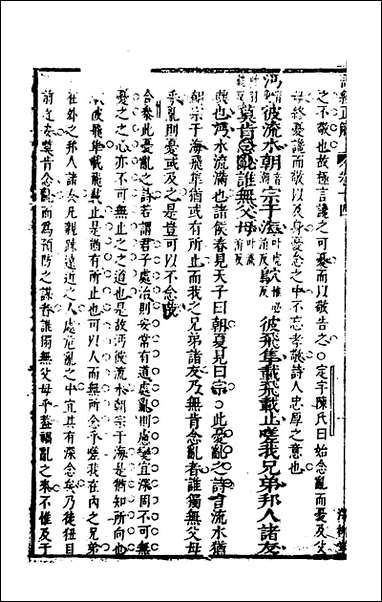 之不敬也故極言讒之可憂而以敬告之○定宇陳氏曰始念亂而憂及父
母終憂讒而敬以及身憂怠之中不忘孝敬詩人忠厚之意也
沔彼流水朝宗于海鴥彼飛隼載飛載止嗟我兄弟邦人諸友
莫肯念亂誰無父母
興也沔水流滿也諸侯春見天子曰朝夏見曰宗○此憂亂之詩言流水猶
朝宗于海飛隼猶或有所止而我之兄弟諸友乃無肯念亂者誰獨無父母
乎亂則憂或及之是豈可以不念哉
合參此憂亂之詩若謂君子處治則安常有道處亂則慮變宜深周不可無
憂之之心亦不可無止之之道也是故沔彼流水朝宗于海是猶知所向也
鴥彼飛隼載飛載止是猶有所止也可以人而無所念乎嗟我在內之兄弟
在外之邦人諸友凡親踈遠近之人處危亂之中宜具有深念矣乃徒狃目
前之安莫肯念亂而爲預防之謀者誰獨無父母乎蓋禍亂之來不惟及于